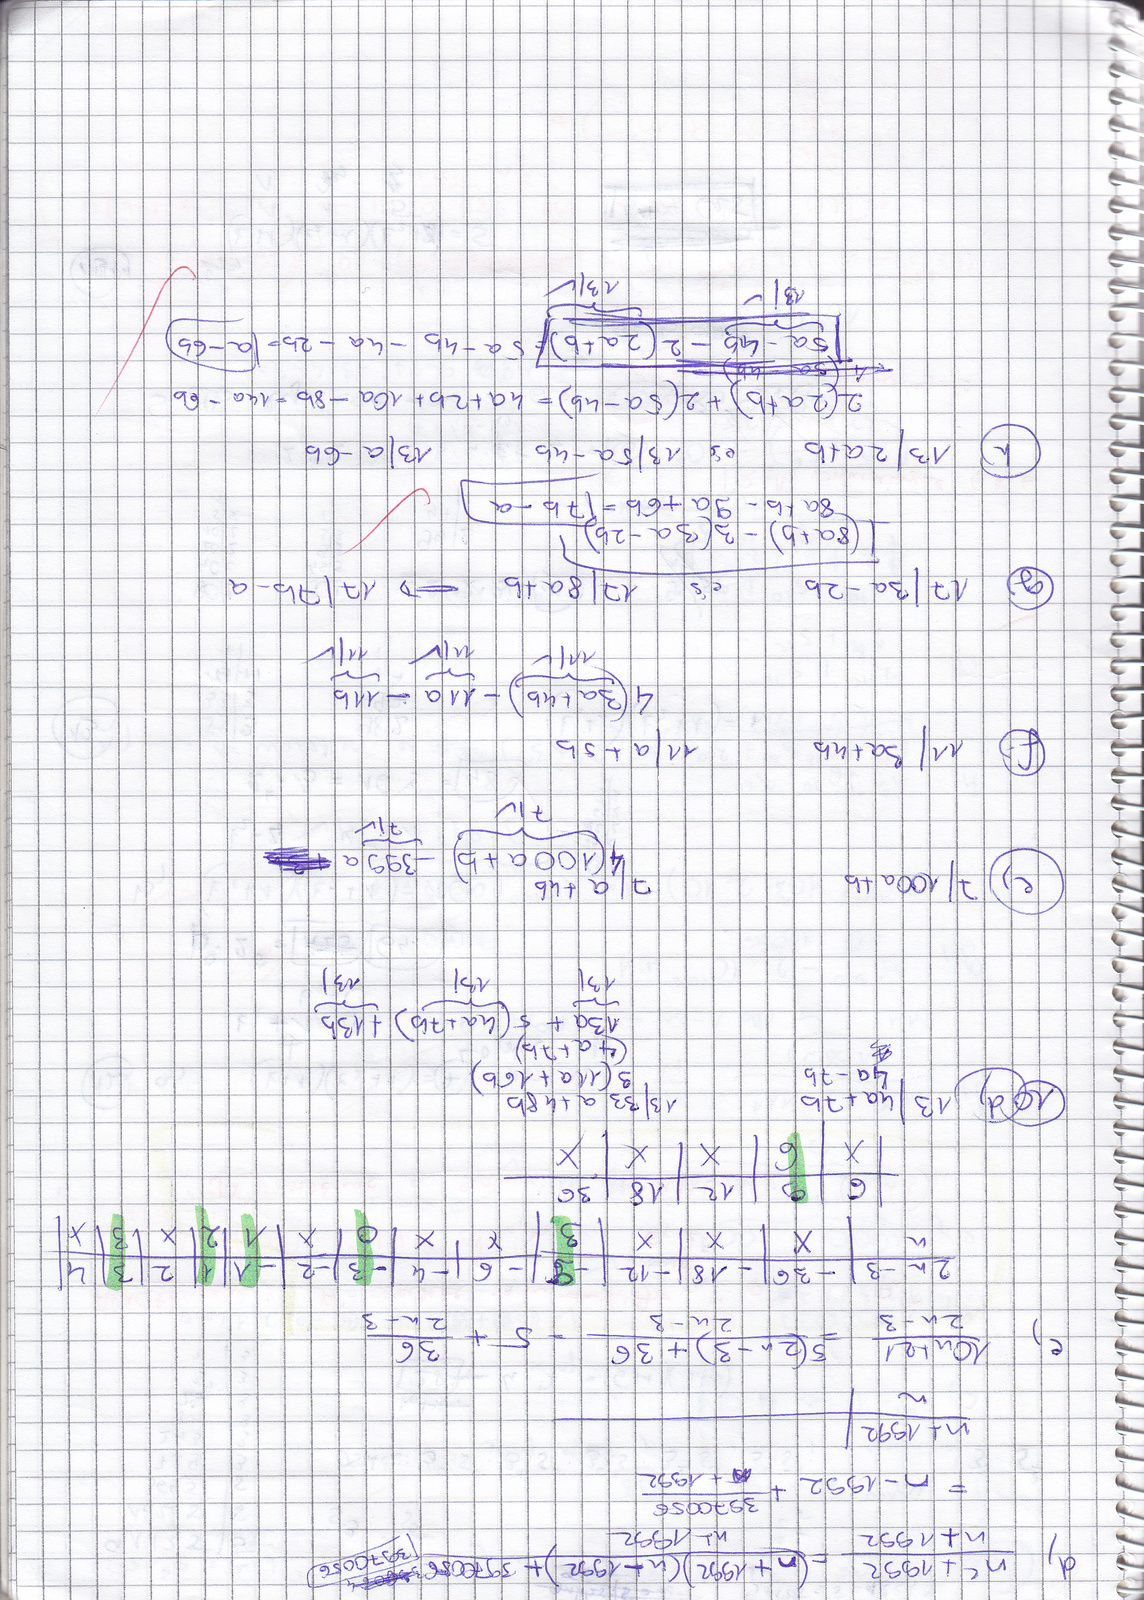 d) n²+1992 / n+1992 = (n+1992)(n-1992)+3970056 / n+1992 3970056
= n-1992 + 3970056 / n+1992
n+1992
n
e) 10n+21 / 2n-3 = 5(2n-3)+36 / 2n-3 = 5 + 36 / 2n-3
2n-3 | -36 | -18 | -12 | -9 | -6 | -4 | -3 | -2 | -1 | 1 | 2 | 3 | 4
n | X | X | X | 3 | X | X | 0 | X | 1 | 2 | X | 3 | X
6 | 9 | 12 | 18 | 36
X | 6 | X | X | X
10 d, 13|4a+7b 13|33a+48b
4a-7b 3(11a+16b)
(4a+7b)
13a + 5(4a+7b) + 13b
13| 13| 13|
e) 7|100a+b 7|a+4b
4(100a+b) - 399a
7|✓ 7|✓
f 11|3a+4b 11|a+5b
4(3a+4b) - 11a - 11b
11|✓ 11|✓ 11|✓
g 17|3a-2b és 17|8a+b => 17|7b-a
(8a+b) - 3(3a-2b)
8a+b - 9a+6b = 7b-a
h 13|2a+b és 13|5a-4b 13|a-6b
2(2a+b) + 2(5a-4b) = 4a+2b+10a-8b=14a-6b
5a-4b - 2(2a+b) = 5a-4b-4a-2b= a-6b
13|✓ 13|✓